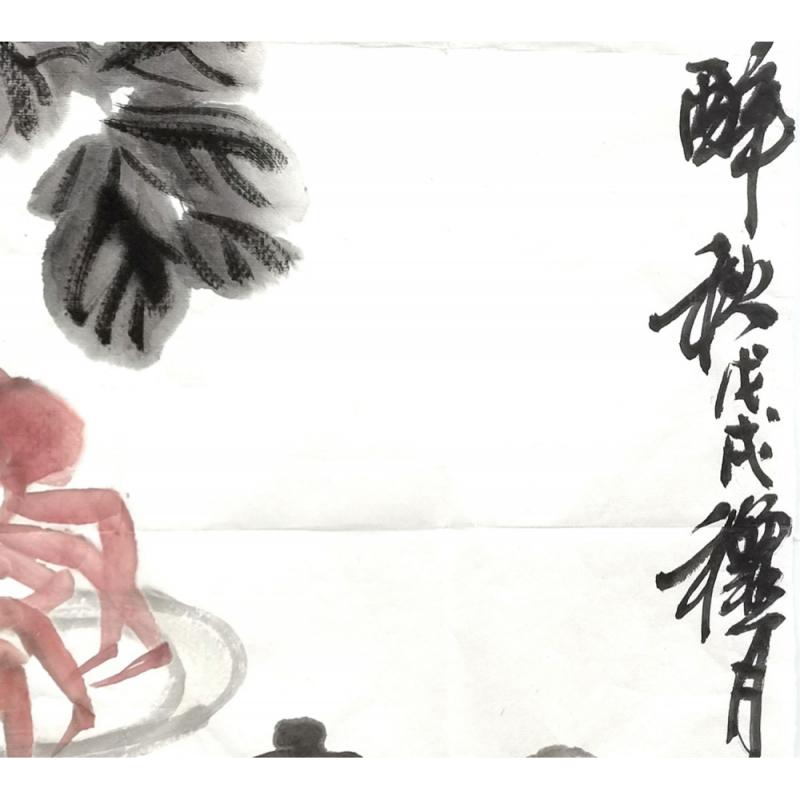 醉秋戊戌月